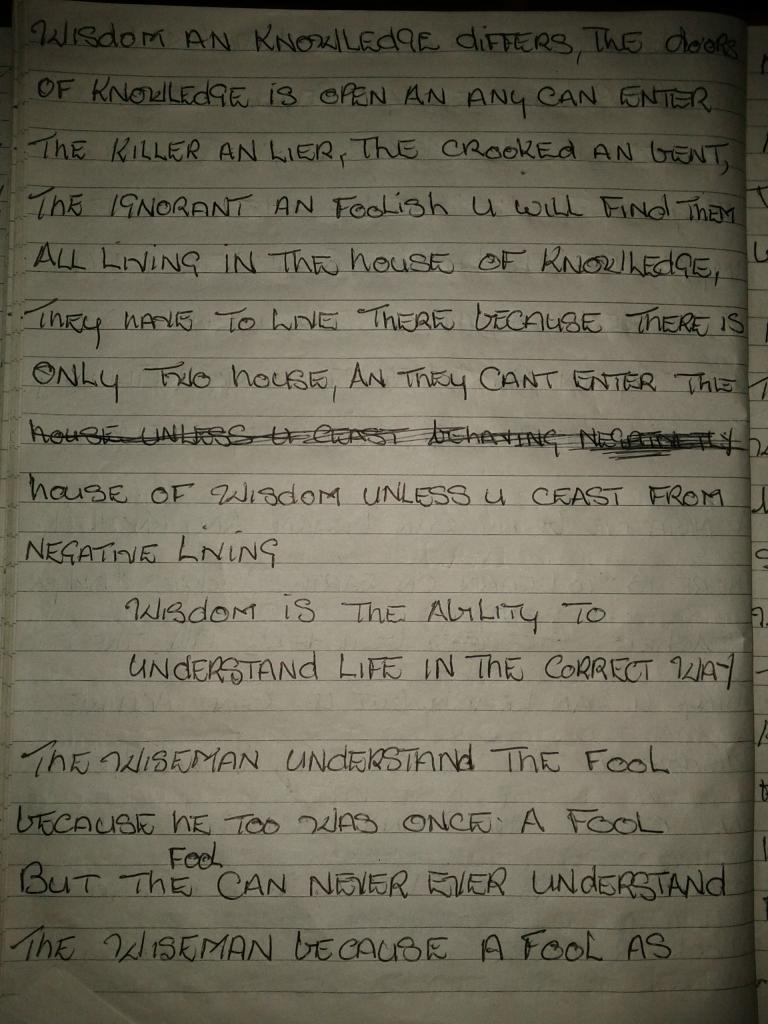 WISDOM AN KNOWLEDGE DIFFERS, THE DOORS
OF KNOWLEDGE IS OPEN AN ANY CAN ENTER
THE KILLER AN LIER, THE CROOKED AN BENT,
THE IGNORANT AN FOOLISH U WILL FIND THEM
ALL LIVING IN THE HOUSE OF KNOWLEDGE,
THEY HAVE TO LIVE THERE BECAUSE THERE IS
ONLY TWO HOUSE, AN THEY CANT ENTER THE
HOUSE UNLESS U CEAST BEHAVING NEGATIVELY
HOUSE OF WISDOM UNLESS U CEAST FROM
NEGATIVE LIVING
WISDOM IS THE ABILITY TO
UNDERSTAND LIFE IN THE CORRECT WAY
THE WISEMAN UNDERSTAND THE FOOL
BECAUSE HE TOO WAS ONCE A FOOL
BUT THE FOOL CAN NEVER EVER UNDERSTAND
THE WISEMAN BECAUSE A FOOL AS